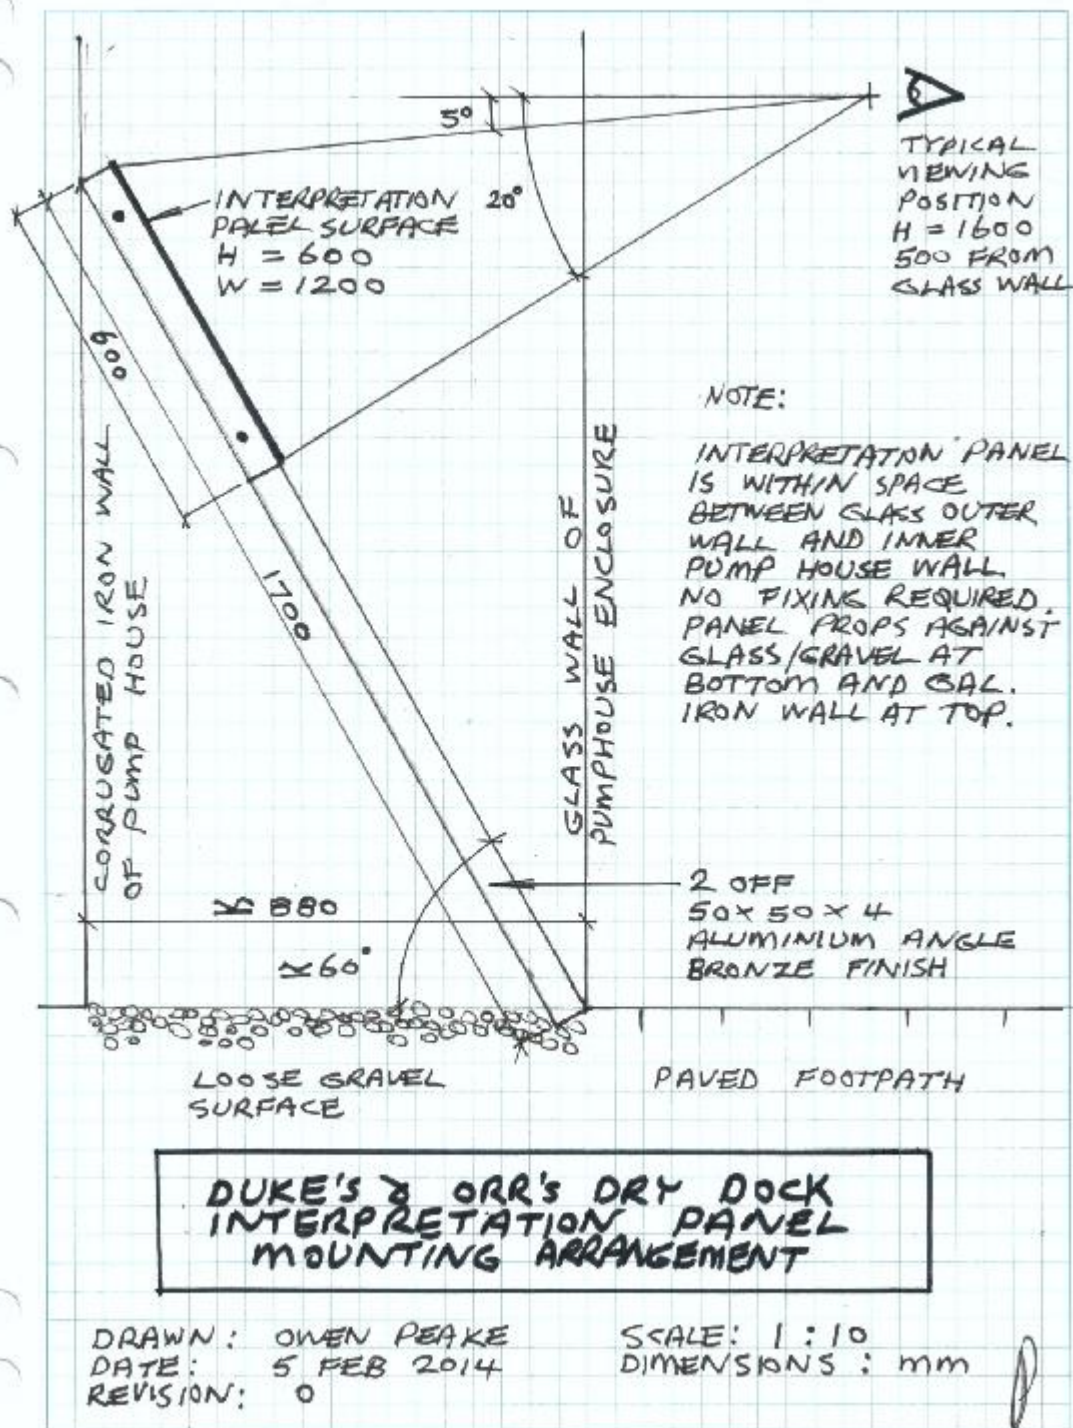 5°
20°
TYPICAL
VIEWING
POSITION
H = 1600
500 FROM
GLASS WALL
INTERPRETATION
PALEL SURFACE
H = 600
W = 1200
600
1700
CORRUGATED IRON WALL
OF PUMP HOUSE
GLASS WALL OF
PUMPHOUSE ENCLOSURE
NOTE:
INTERPRETATION PANEL
IS WITHIN SPACE
BETWEEN GLASS OUTER
WALL AND INNER
PUMP HOUSE WALL.
NO FIXING REQUIRED.
PANEL PROPS AGAINST
GLASS/GRAVEL AT
BOTTOM AND GAL.
IRON WALL AT TOP.
880
≃60°
2 OFF
50 × 50 × 4
ALUMINIUM ANGLE
BRONZE FINISH
LOOSE GRAVEL
SURFACE
PAVED FOOTPATH
DUKE'S & ORR'S DRY DOCK
INTERPRETATION PANEL
MOUNTING ARRANGEMENT
DRAWN: OWEN PEAKE
DATE: 5 FEB 2014
REVISION: 0
SCALE: 1:10
DIMENSIONS: mm